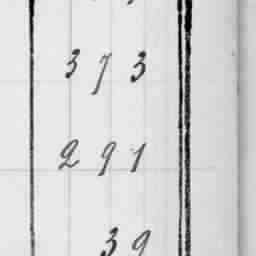 373
291
39